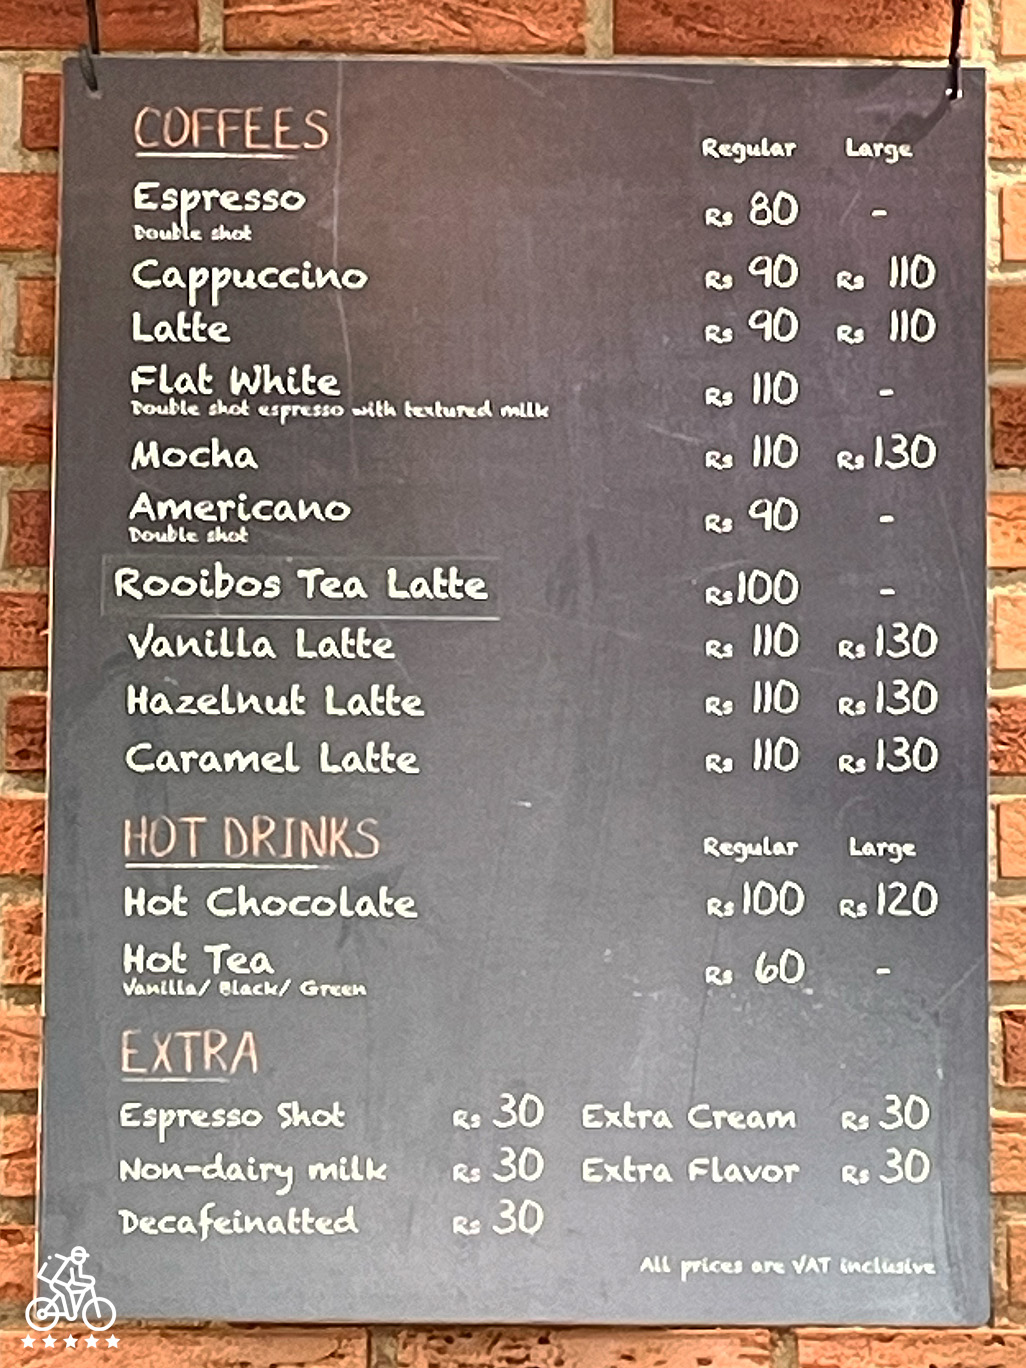 COFFEES Regular Large
Espresso Rs 80 -
Double shot
Cappuccino Rs 90 Rs 110
Latte Rs 90 Rs 110
Flat White Rs 110 -
Double shot espresso with textured milk
Mocha Rs 110 Rs 130
Americano Rs 90 -
Double shot
Rooibos Tea Latte Rs 100 -
Vanilla Latte Rs 110 Rs 130
Hazelnut Latte Rs 110 Rs 130
Caramel Latte Rs 110 Rs 130
HOT DRINKS Regular Large
Hot Chocolate Rs 100 Rs 120
Hot Tea Rs 60 -
Vanilla/ Black/ Green
EXTRA
Espresso Shot Rs 30 Extra Cream Rs 30
Non-dairy milk Rs 30 Extra Flavor Rs 30
Decafeinatted Rs 30
All prices are VAT inclusive